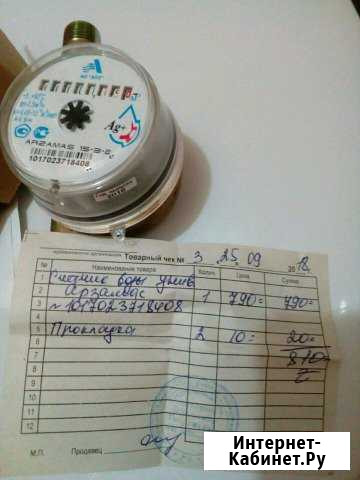 АО "АПЗ"
+5..+90°C
Ag+
ARZAMAS 15-3-2
1017023718408
2018
Товарный чек № 3 25.09 2018
№ Наименование товара Колич. Цена Сумма
1 Счетчик воды
2 Арзамас 1 790= 790=
3 № 1017023718408
4
5 Прокладка 2 10= 20=
6 810=
7
8
9
10
11
12
М.П. Продавец
Интернет-
Кабинет.Ру